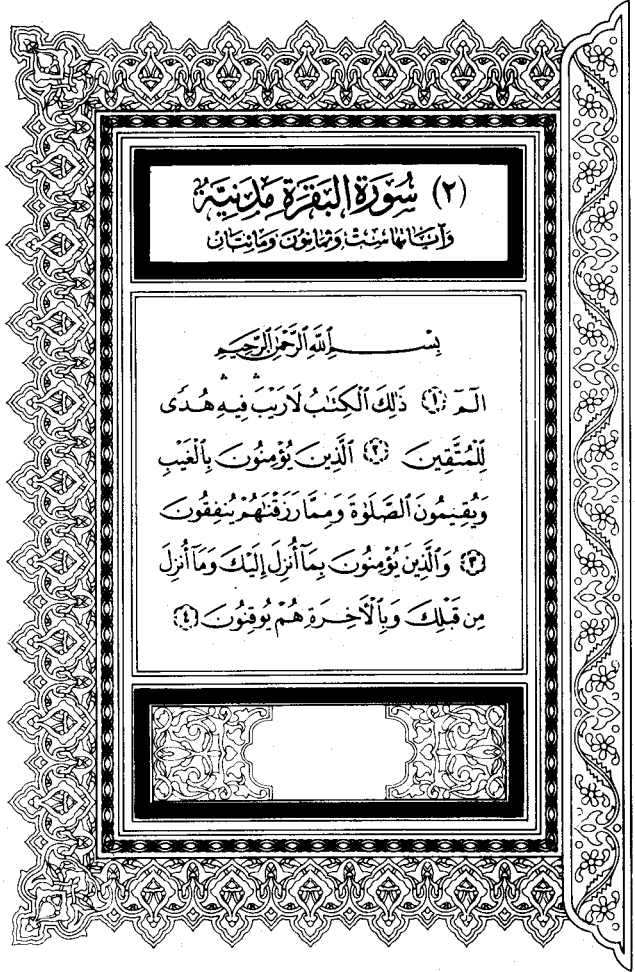 (٢) سُورَةُ البَقَرَةِ مَدَنِيَّةٌ
وَآيَاتُهَا سِتٌّ وَثَمَانُونَ وَمِائَتَانِ
بِسْمِ ٱللَّهِ ٱلرَّحْمَٰنِ ٱلرَّحِيمِ
الٓمٓ ﴿١﴾ ذَٰلِكَ ٱلْكِتَٰبُ لَا رَيْبَ ۛ فِيهِ ۛ هُدًى
لِّلْمُتَّقِينَ ﴿٢﴾ ٱلَّذِينَ يُؤْمِنُونَ بِٱلْغَيْبِ
وَيُقِيمُونَ ٱلصَّلَوٰةَ وَمِمَّا رَزَقْنَٰهُمْ يُنفِقُونَ
﴿٣﴾ وَٱلَّذِينَ يُؤْمِنُونَ بِمَآ أُنزِلَ إِلَيْكَ وَمَآ أُنزِلَ
مِن قَبْلِكَ وَبِٱلْأَخِرَةِ هُمْ يُوقِنُونَ ﴿٤﴾